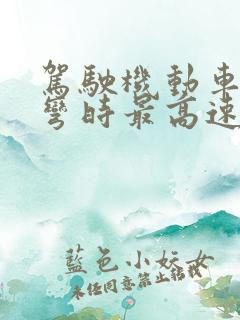 駕駛機動車
彎時最高速
藍色小妖女
未經同意禁止轉載